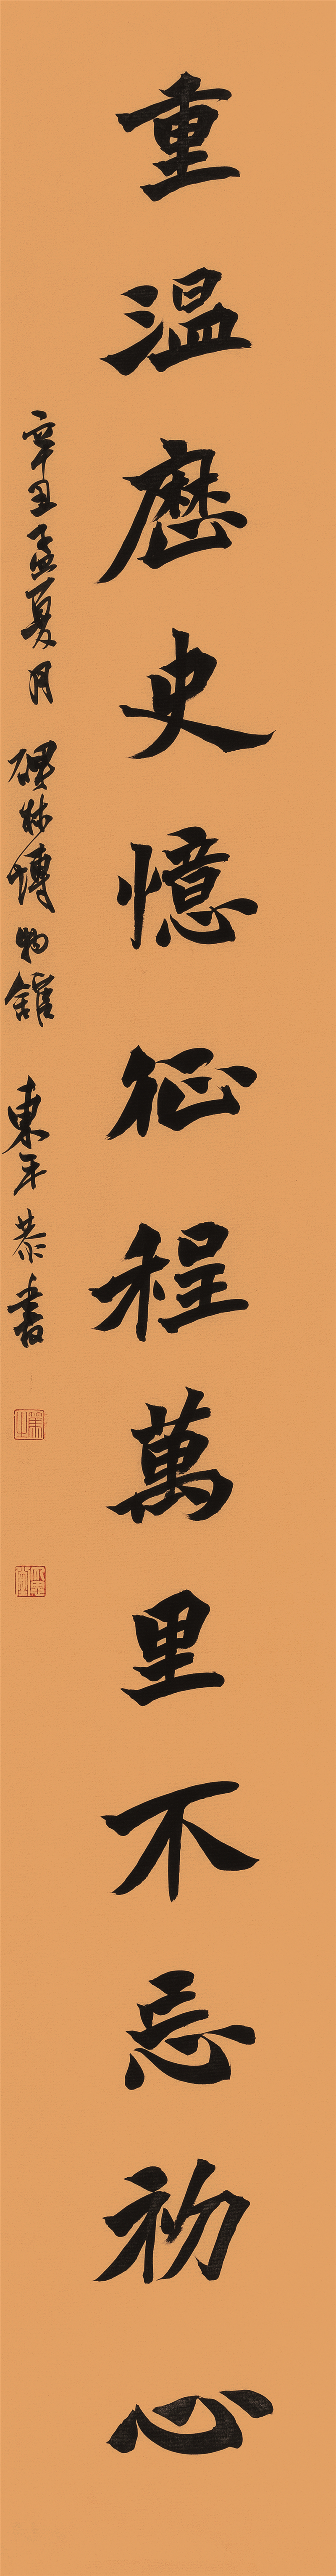 重温歷史憶征程萬里不忘初心
辛丑孟夏月 碑林博物館 東平恭書